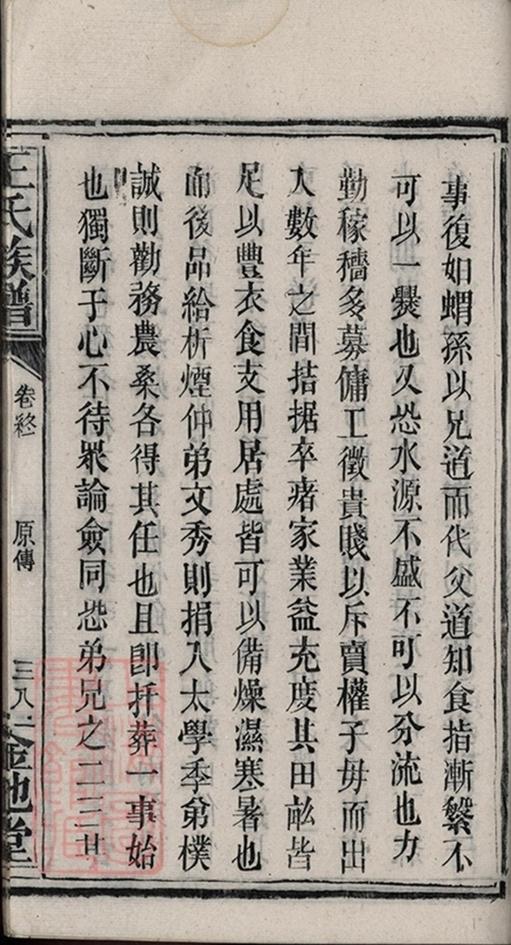 事復如蝟孫以兄道而代父道知食指漸繁不
可以一爨也又恐水源不盛不可以分流也力
勤稼穡多募傭工徵貴賤以斥賣權子毋而出
入數年之間拮据卒瘏家業益充度其田畝皆
足以豐衣食支用居處皆可以備燥濕寒暑也
而後品給析煙仲弟文秀則捐入太學季弟樸
誠則勸務農桑各得其任也且卽扦葬一事始
也獨斷于心不待眾論僉同恐弟兄之二三其
王氏族譜
卷終
原傳
三八
金池堂